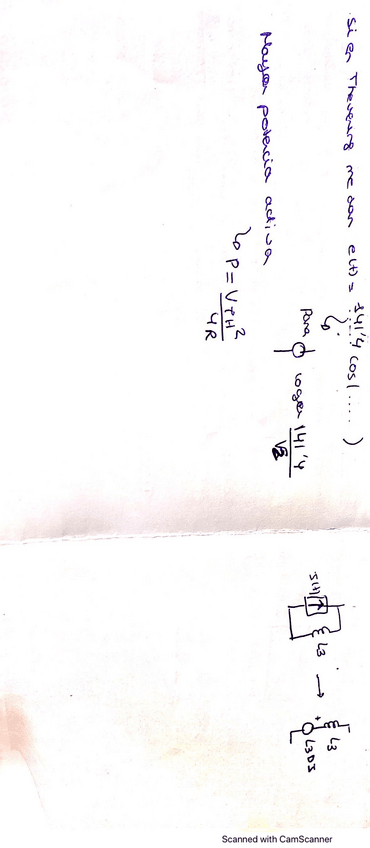 Si en Thevening me dan e(t) = 141'4 cos(.....)
para coger 141'4 / √2
Mayor potencia activa
↳ P = VTH² / 4R
S(t) L3 → + L3
L3DS
Scanned with CamScanner